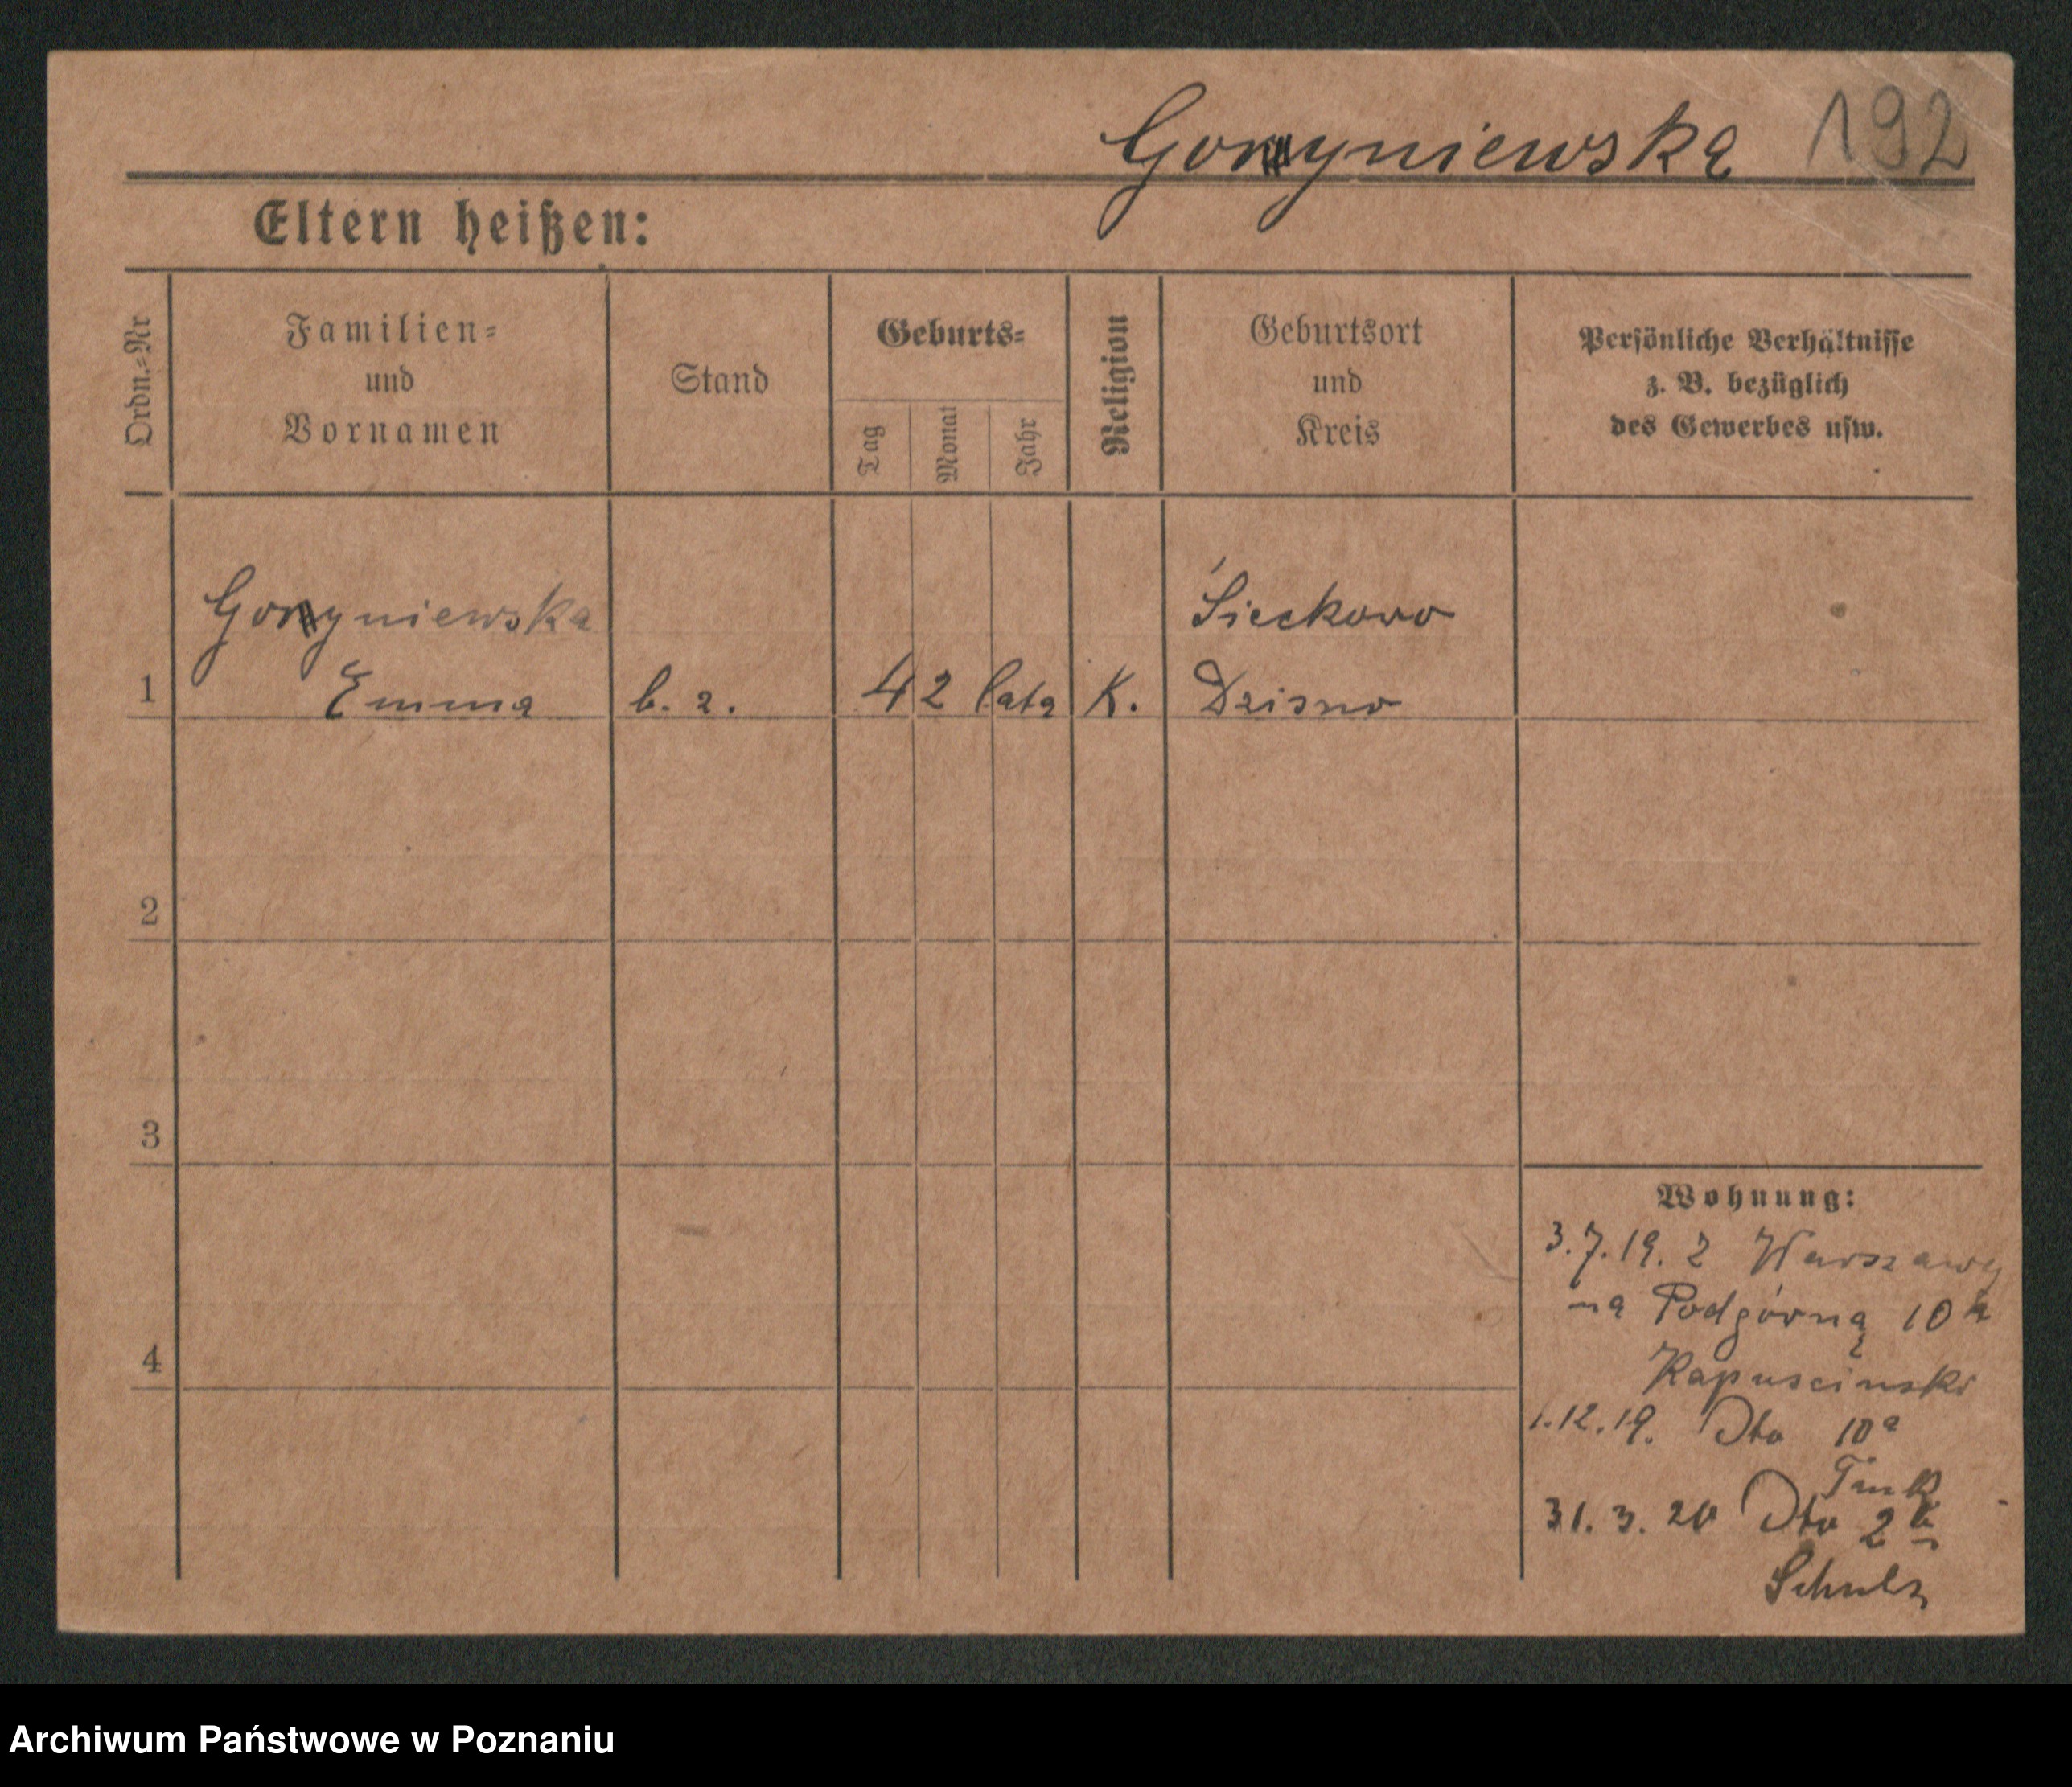 Goryniewska 192
Eltern heißen:
Ordn.=Nr
Familien=
und
Vornamen
Stand
Geburts=
Tag
Monat
Jahr
Religion
Geburtsort
und
Kreis
Persönliche Verhältnisse
z. B. bezüglich
des Gewerbes usw.
Goryniewska Śieckowo
1 Emma b. z. 42 lata K. Dzisno
2
3
4
Wohnung:
3.7.19. z Warszawy
na Podgórną 10a
Kapuscinski
1.12.19. Dto 10a
31.3.20 Dto 2b
Schulz
Archiwum Państwowe w Poznaniu